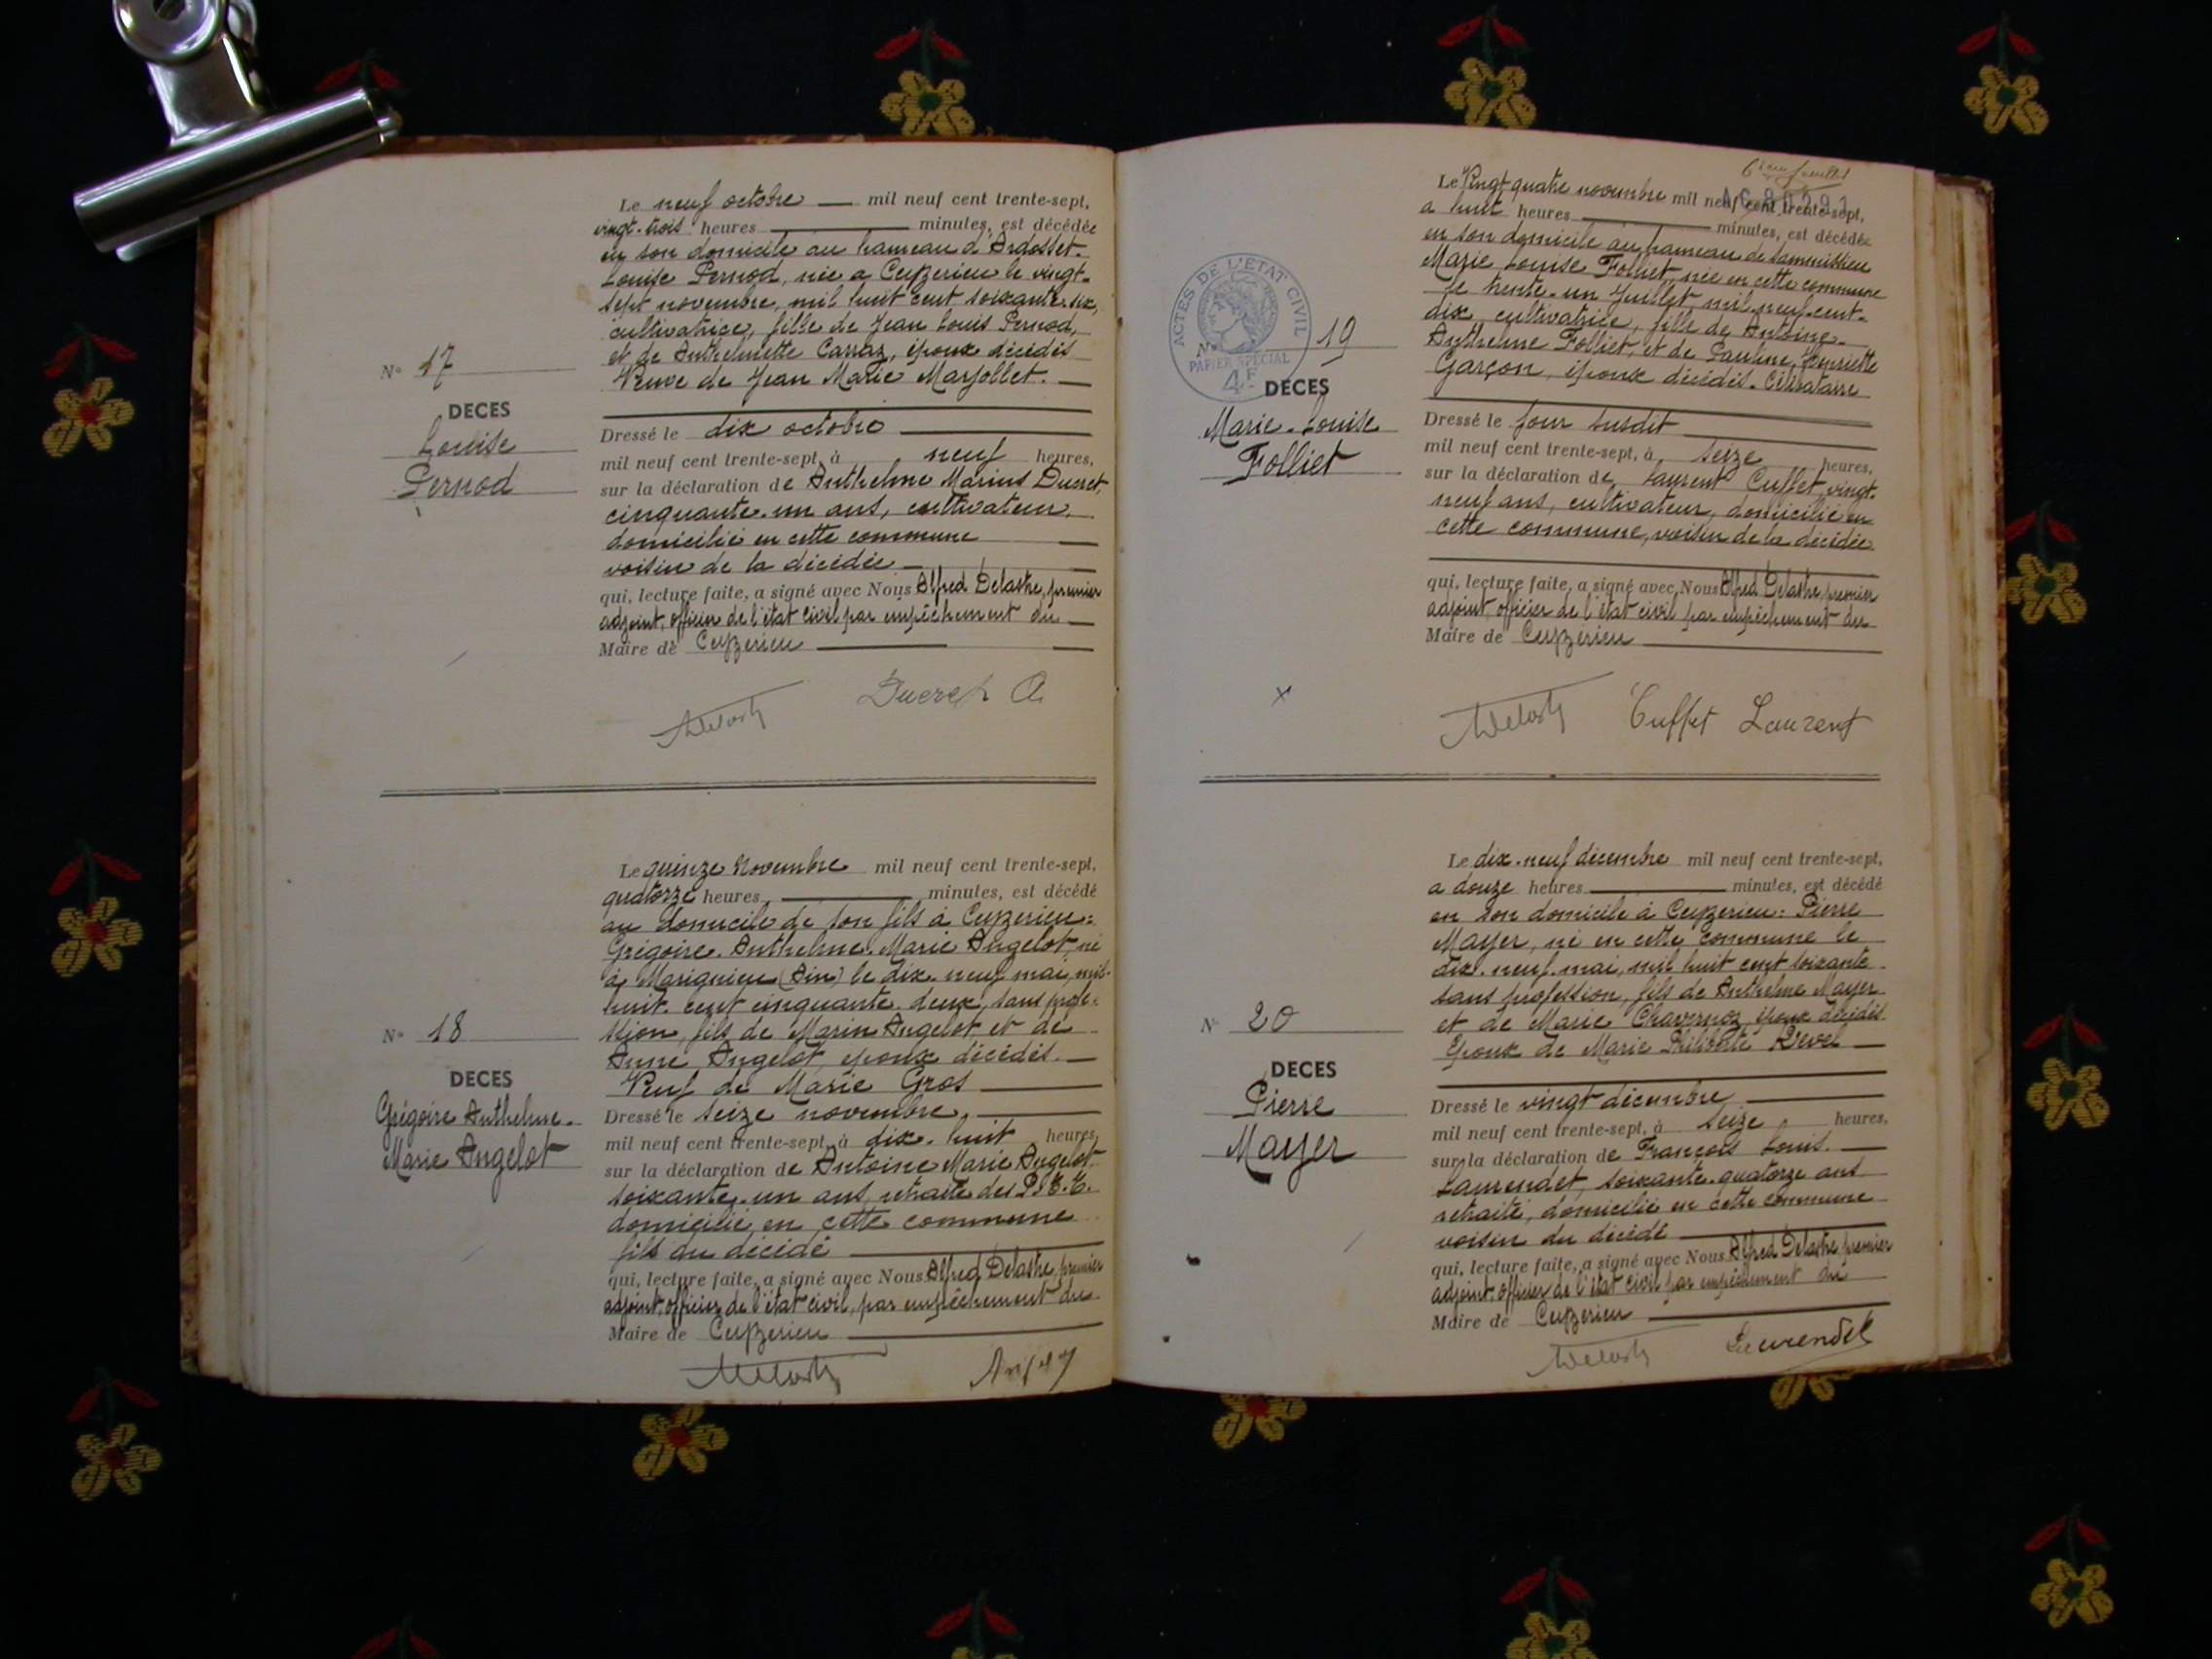 Le neuf octobre mil neuf cent trente-sept,
vingt-trois heures minutes, est décédée
en son domicile au hameau d'Ardosset
Louise Pernod, née a Ceyzerieu le vingt-
sept novembre, mil huit cent soixante six,
cultivatrice, fille de Jean Louis Pernod,
et de Anthelmette Carraz, époux décédés
Veuve de Jean Marie Marjollet.
N° 17
DECES
Louise
Pernod
Dressé le dix octobre
mil neuf cent trente-sept, à neuf heures,
sur la déclaration de Anthelme Marius Ducret,
cinquante-un ans, cultivateur,
domicilié en cette commune
voisin de la décédée
qui, lecture faite, a signé avec Nous Alfred Delastre, premier
adjoint, officier de l'état civil par empêchement du
Maire de Ceyzerieu
Ducret A.
Le quinze Novembre mil neuf cent trente-sept,
quatorze heures minutes, est décédé
au domicile de son fils à Ceyzerieu:
Grégoire Anthelme Marie Angelot, né
à Marignieu (Ain) le dix-neuf mai, mil-
huit-cent cinquante-deux, sans profes-
sion, fils de Marin Angelot et de
Anne Angelot, époux décédés.
Veuf de Marie Gros
N° 18
DECES
Grégoire Anthelme
Marie Angelot
Dressé le seize novembre,
mil neuf cent trente-sept, à dix-huit heures,
sur la déclaration de Antoine Marie Angelot
soixante-un ans, retraité des P.T.T.
domicilié en cette commune
fils du décédé
qui, lecture faite, a signé avec Nous Alfred Delastre, premier
adjoint, officier de l'état civil, par empêchement du
Maire de Ceyzerieu
Le Vingt-quatre novembre mil neuf cent trente-sept,
a huit heures minutes, est décédée
en son domicile au hameau de
Marie Louise Folliet, née en cette commune
le trente-un Juillet mil-neuf-cent-
dix, cultivatrice, fille de Antoine-
Anthelme Folliet, et de Pauline, Henriette
Garçon, époux décédés. Célibataire
ACTES DE L'ETAT CIVIL
PAPIER SPÉCIAL
4F
N° 19
DECES
Marie-Louise
Folliet
Dressé le jour susdit
mil neuf cent trente-sept, à seize heures,
sur la déclaration de Laurent Cuffet, vingt-
neuf ans, cultivateur, domicilié en
cette commune, voisin de la décédée
qui, lecture faite, a signé avec Nous Alfred Delastre, premier
adjoint, officier de l'état civil par empêchement du
Maire de Ceyzerieu
Cuffet Laurent
Le dix-neuf décembre mil neuf cent trente-sept,
a douze heures minutes, est décédé
en son domicile à Ceyzerieu: Pierre
Mayer, né en cette commune le
dix-neuf-mai, mil huit cent soixante
sans profession, fils de Anthelme Mayer
et de Marie Chavernoz, époux décédés
époux de Marie Philiberte Revel
N° 20
DECES
Pierre
Mayer
Dressé le vingt décembre
mil neuf cent trente-sept, à seize heures,
sur la déclaration de François Louis
Laurendet, soixante-quatorze ans
retraité, domicilié en cette commune
voisin du décédé
qui, lecture faite, a signé avec Nous Alfred Delastre, premier
adjoint, officier de l'état civil par empêchement du
Maire de Ceyzerieu
Laurendet